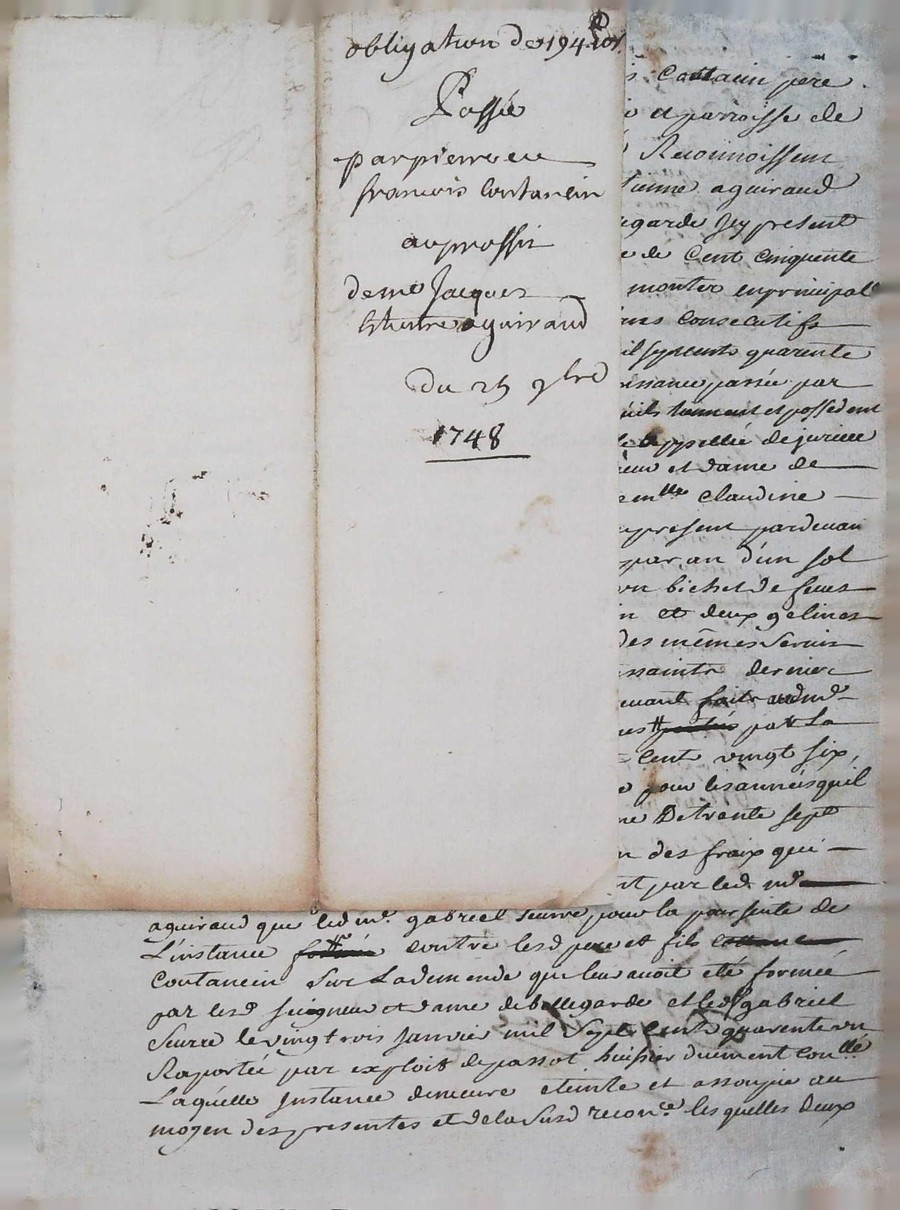 obligation de 194# 10s.
Passée
par pierre et
francois Contancin
au proffit
de me Jacques
Etienne aguiraud
Du 25 9bre
1748
Contancin pere
et parroisse de
Reconnoissent
tienne aguiraud
egarde Jcy present
e de Cent Cinquente
monter en principal
consecutifs
il sept cents quarente
passée par
quils tiennent et possedent
appellée de
et dame de
emlle claudine
present pardevan
par an d'un sol
un bichet de feves
et deux gelines
des mêmes Servis
ssaints dernier
faite md
par La
Cent vingt six
pour les années quil
De trente sept
des fraix qui
nt par led. md
aguiraud que led mr. gabriel Seurre pour la poursuite de
L'instance contre lesd pere et fils
Contancin Sur La demende qui leur avoit eté formée
par lesd Seigneur et dame de bellegarde et led gabriel
Seurre le vingt trois Janvier mil Sept cents quarente un
Raportée par exploit de passot huissier duement conllé
Laquelle Jnstance demeure eteinte et assoupie au
moyen des presentes et de la Susd reconce. lesquelles deux